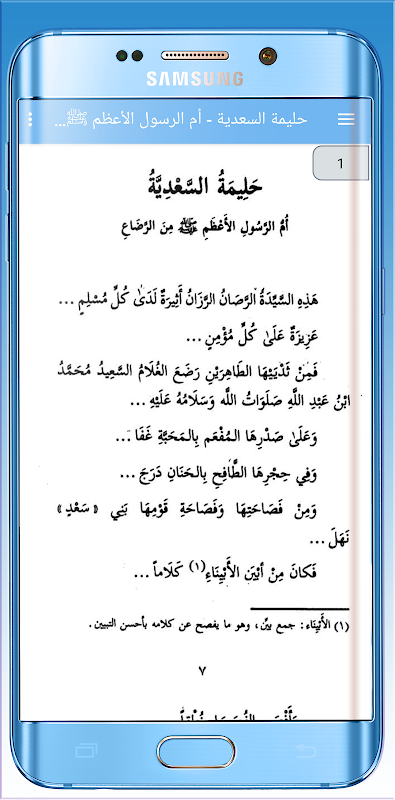 SAMSUNG
حليمة السعدية - أم الرسول الأعظم ﷺ...
1
حَلِيمَةُ السَّعْدِيَّةُ
أُمُّ الرَّسُولِ الأَعْظَمِ ﷺ مِنَ الرَّضَاعِ
هَذِهِ السَّيِّدَةُ الرَّصَانُ الرَّزَانُ أَثِيرَةٌ لَدَىٰ كُلِّ مُسْلِمٍ ...
عَزِيزَةٌ عَلَىٰ كُلِّ مُؤْمِنٍ ...
فَمِنْ ثَدْيَيْهَا الطَّاهِرَيْنِ رَضَعَ الغُلَامُ السَّعِيدُ مُحَمَّدُ
ابْنُ عَبْدِ اللَّهِ صَلَوَاتُ اللَّه وَسَلَامُهُ عَلَيْهِ ...
وَعَلَىٰ صَدْرِهَا المُفْعَمِ بِالمَحَبَّةِ غَفَا ...
وَفِي حِجْرِهَا الطَّافِحِ بِالحَنَانِ دَرَجَ ...
وَمِنْ فَصَاحَتِهَا وَفَصَاحَةِ قَوْمِهَا بَنِي «سَعْدٍ»
نَهَلَ ...
فَكانَ مِنْ أَبْيَنِ الأَبْيِنَاءِ(١) كَلَاماً ...
(١) الأَبْيِنَاء: جمع بيِّن، وهو ما يفصح عن كلامه بأحسن التبيين.
٧